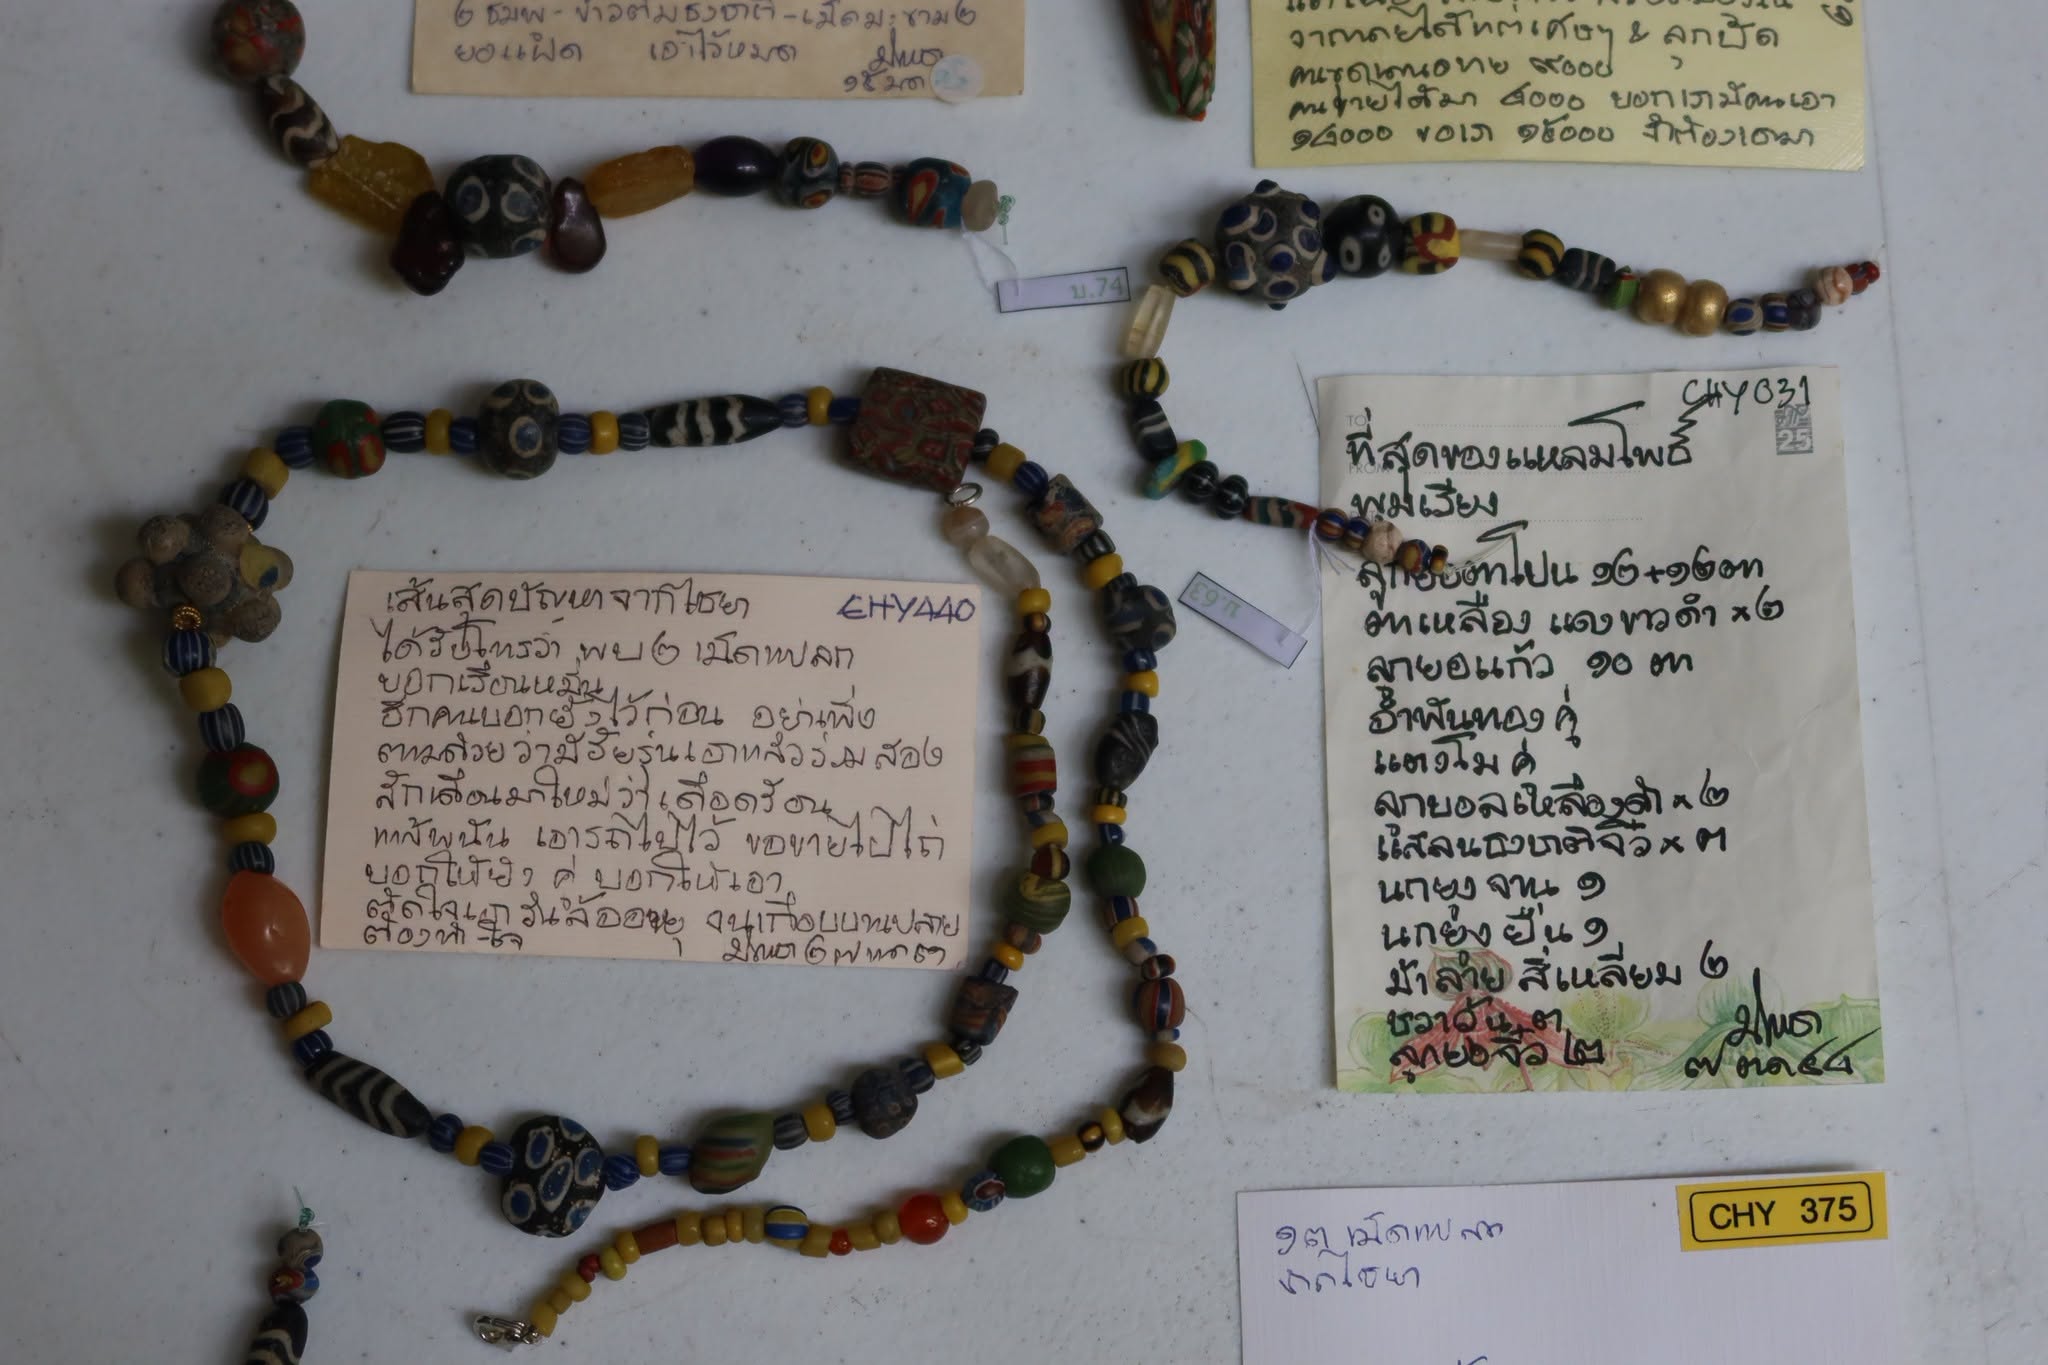 ๒ ธมพ - ข้าวต้มธงชาติ - เม็ดมะขาม ๒
ยอแฝด เอาไว้หมด
๑๕ มค
& ลูกปัด
คนขุดเสนอขาย ๙๐๐๐
คนขายได้มา ๘๐๐๐ บอกเรามีคนเอา
๑๘๐๐๐ ขอเรา ๑๕๐๐๐ จำต้องเอามา
บ.74
CHY 031
TO
25
ที่สุดของแหลมโพธิ์
FROM
พุมเรียง
ลูกยอตาโปน ๑๒+๑๒ตา
ตาเหลือง แดงขาวดำ x ๒
ลูกยอแก้ว ๑๐ ตา
อำพันทอง คู่
แตงโม คู่
ลูกยอลายเหลืองดำ x ๒
แสลนธงชาติจิ๋ว x ๓
นกยูง จาน ๑
นกยูง ยืน ๑
ม้าลาย สี่เหลี่ยม ๒
ชวาวัน ๓
ลูกยอจิ๋ว ๒
๗ ตค ๔๔
บ.63
เส้นสุดปัญหาจากไชยา CHY440
ได้รับโทรว่า พบ ๒ เม็ดแปลก
บอกเรือนหมื่น
อีกคนบอกยั้งไว้ก่อน อย่าเพิ่ง
สักเดือนมาใหม่ว่าเดือดร้อน
แพ้พนัน เอารถไปไว้ ขอขายไปไถ่
บอกให้ยั้ง คู่ บอกให้เอา
ต้องทำใจ
CHY 375
๑๓ เม็ดแปลก
จากไชยา